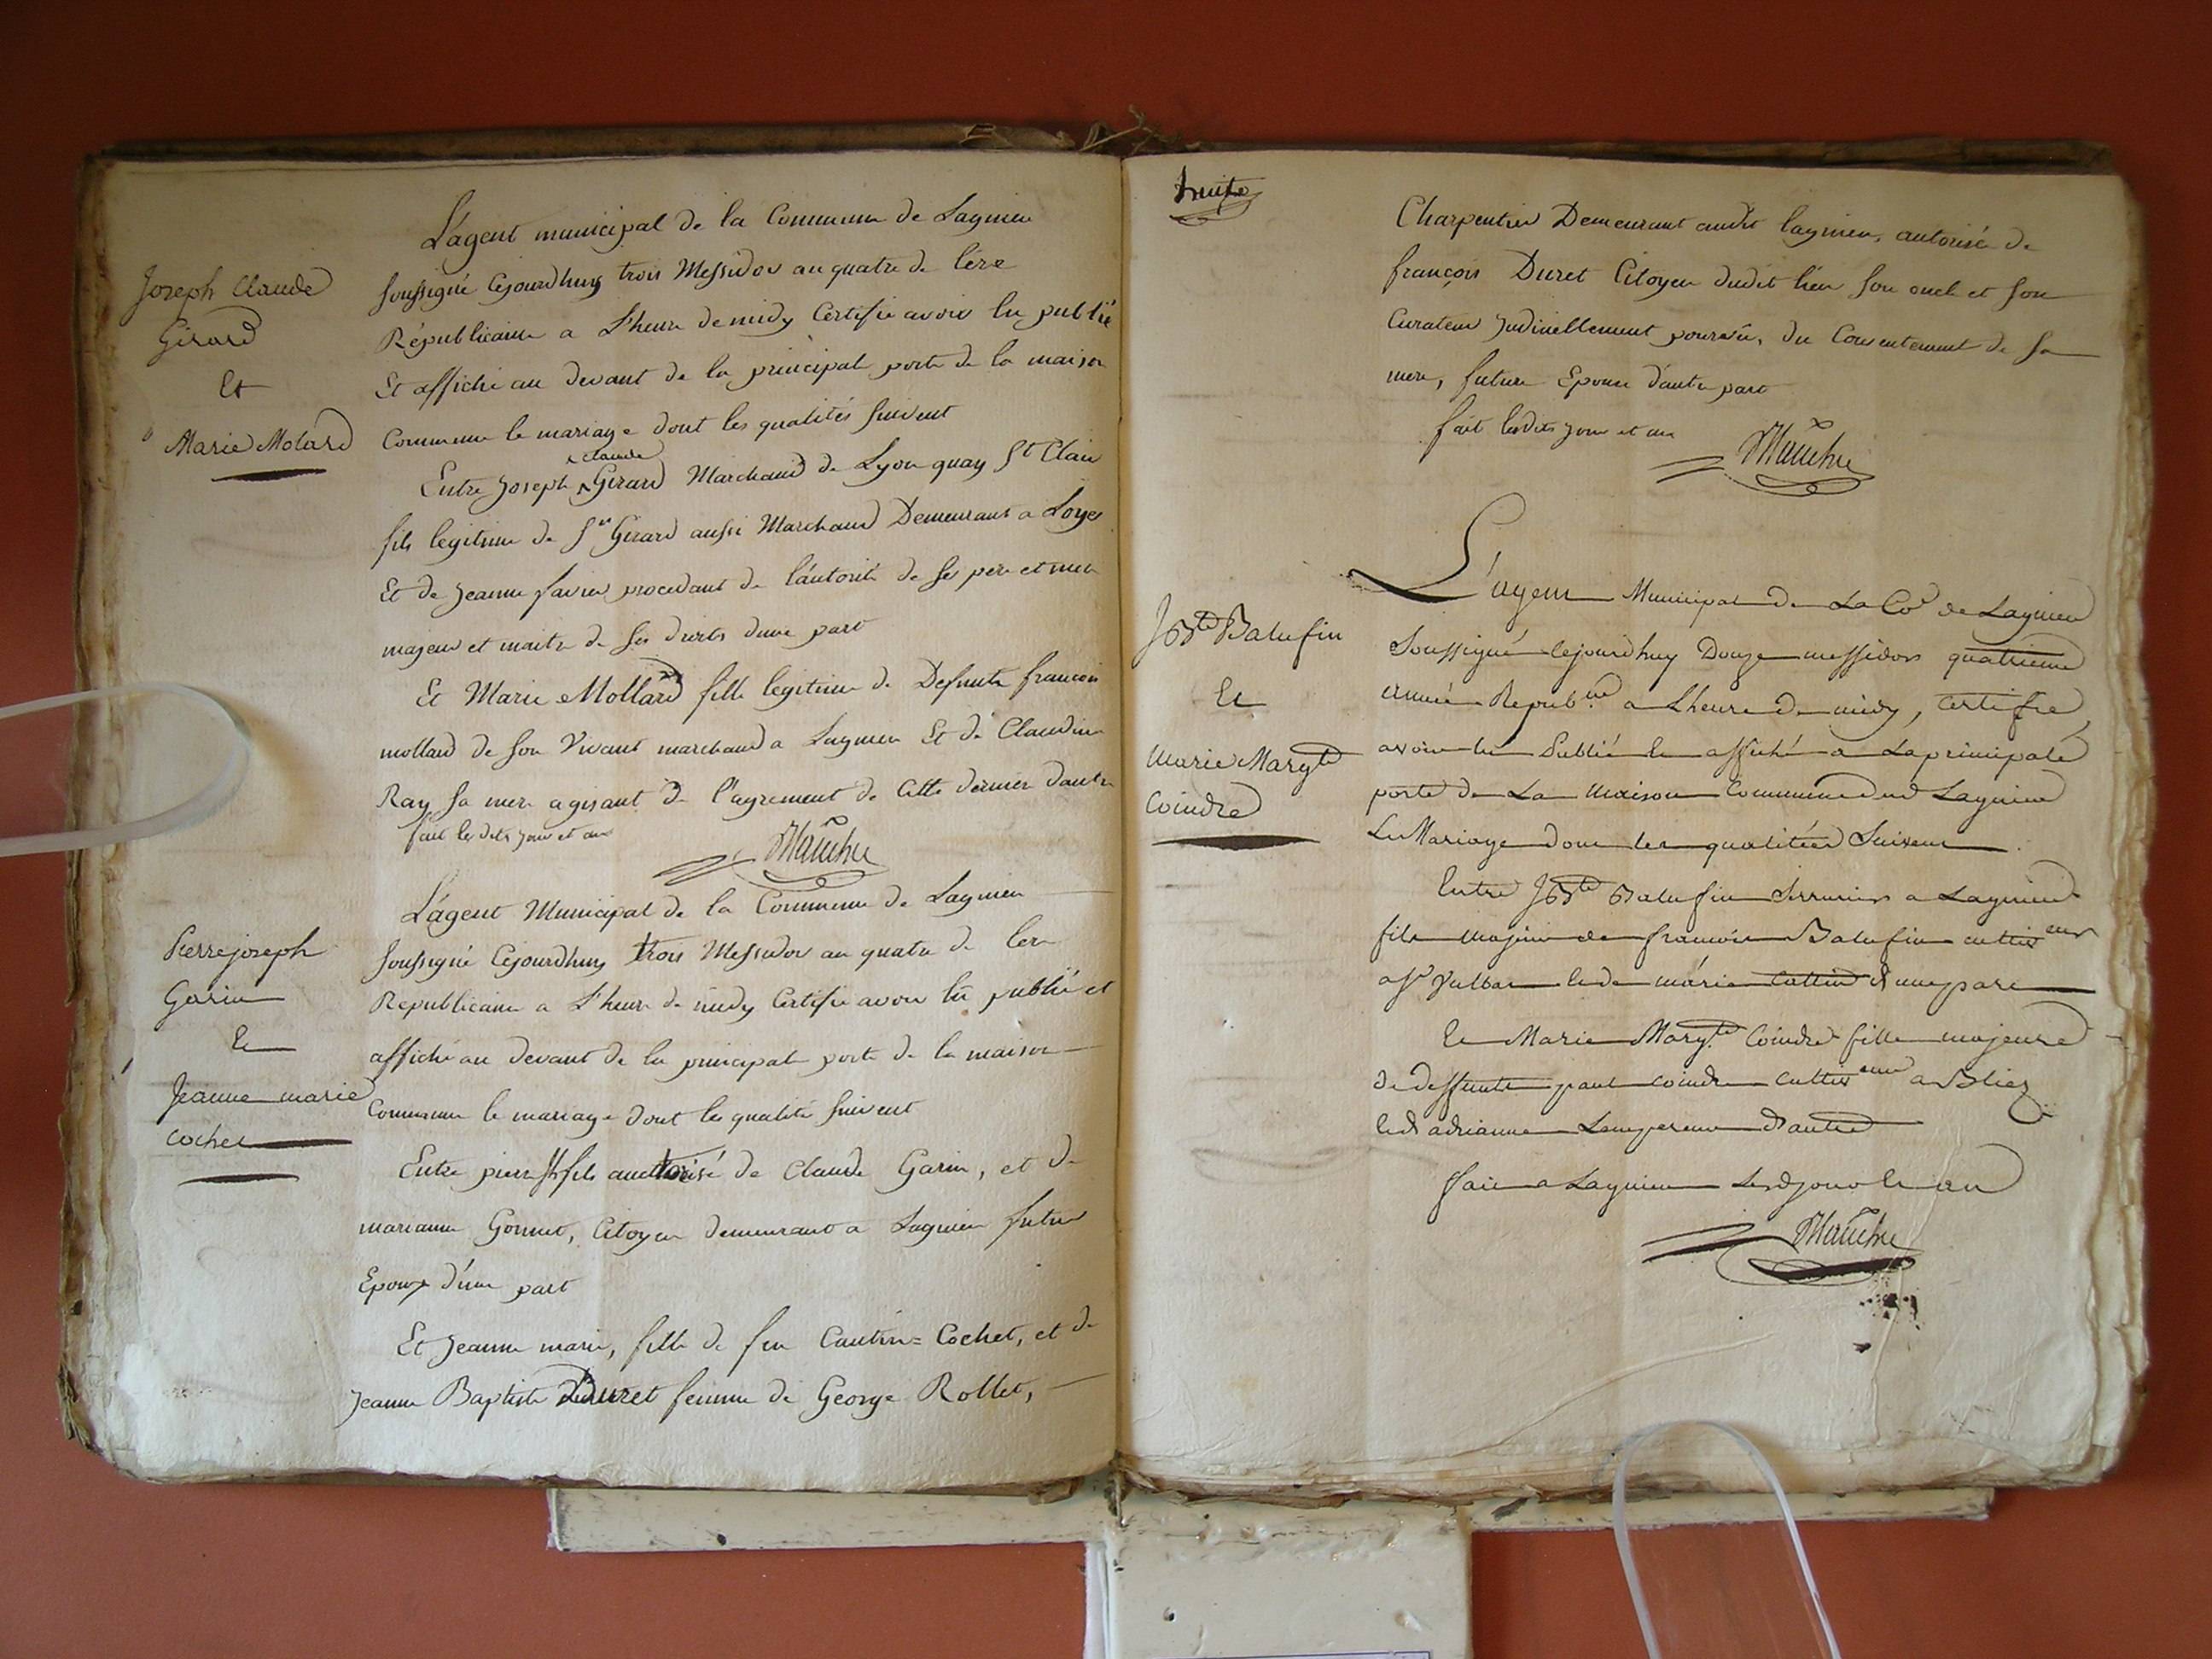 Joseph Claude
Girard
Et
Marie Molard
L'agent municipal de la Commune de Lagnieu
soussigné Cejourdhuy trois Messidor an quatre de l'ere
Républicaine a L'heure de midy Certifie avoir lu publié
Et affiché au devant de la principale porte de la maison
Commune le mariage dont les qualités suivent
Entre Joseph claude Girard Marchand de Lyon quay St Clair
fils legitime de Sr Girard aussi Marchand Demeurant a Loyes
Et de Jeanne favier procedant de l'autorité de ses pere et mere
majeur et maitre de ses droits dune part
Et Marie Mollard fille legitime de Defunte francois
mollard de son Vivant marchand a Lagnieu Et de Claudine
Ray sa mere agisant de l'agrement de Cette derniere dautre
fait lesdits jour et an
Mauchre
Pierre joseph
Garin
Et
Jeanne marie
Cochet
L'agent Municipal de la Commune de Lagnieu
soussigné Cejourdhuy trois Messidor an quatre de l'ere
Republicaine a L'heure de midy Certifie avoir lu publié et
affiché au devant de la principale porte de la maison
Commune le mariage dont les qualité suivent
Entre pierre Jh fils authorisé de Claude Garin, et de
marianne Gonnet, Citoyen demeurant a Lagnieu futur
Epoux d'une part
Et Jeanne marie, fille de feu Cochet, et de
Jeanne Baptiste Duret femme de George Rollet,
huit
Charpentier Demeurant audit lagnieu, autorisée de
françois Duret Citoyen dudit lieu son oncle et son
Curateur Judiciellement pourvu, du Consentement de sa
mere, future Epouse d'autre part
fait lesdits jour et an
Mauchre
J Bte Balufin
Et
Marie Margte
Coindre
L'agent Municipal de La Co de Lagnieu
Soussigné Cejourdhuy Douze messidor quatrieme
année Repub.ne a Lheure de midy, certifie
avoir lu Publié et affiché a La principale
porte de La Maison Commune dud Lagnieu
Le Mariage dont les qualitées Suivent
Entre J Bte Balufin Serrurier a Lagnieu
fils majeur de francois Balufin cultiveur
a St Vulbas et de marie Cottin d'une part
et Marie Margte Coindre fille majeure
de deffunte paul coindre Cultiveur a Bliez
et d'adrianne d'autre
fait a Lagnieu Lesd jour et an
Mauchre